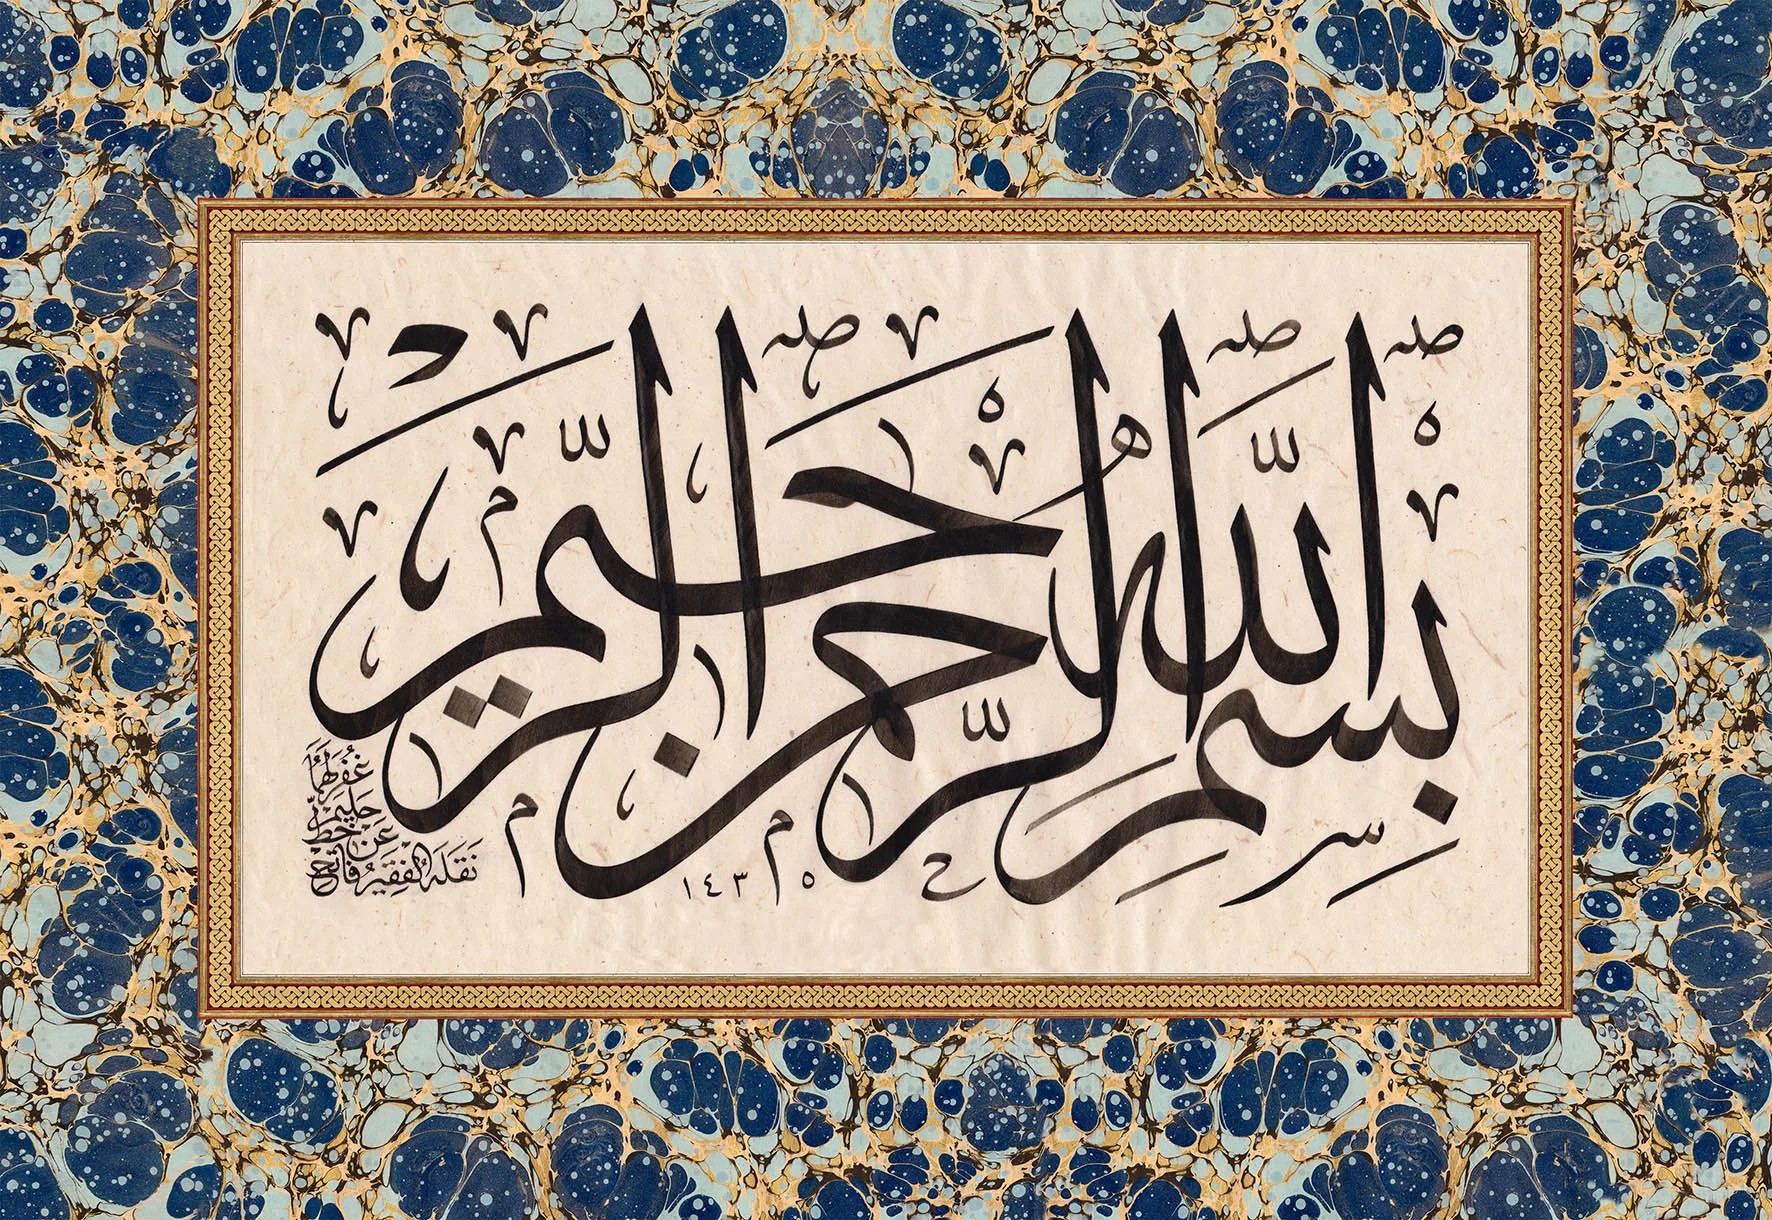 بِسْمِ اللّٰهِ الرَّحْمٰنِ الرَّحِيمِ
نَقَلَهُ الْفَقِيرُ فَاتِح
عَنْ خَطِّ
حَلِيم
غُفِرَ لَهُمَا
١٤٣